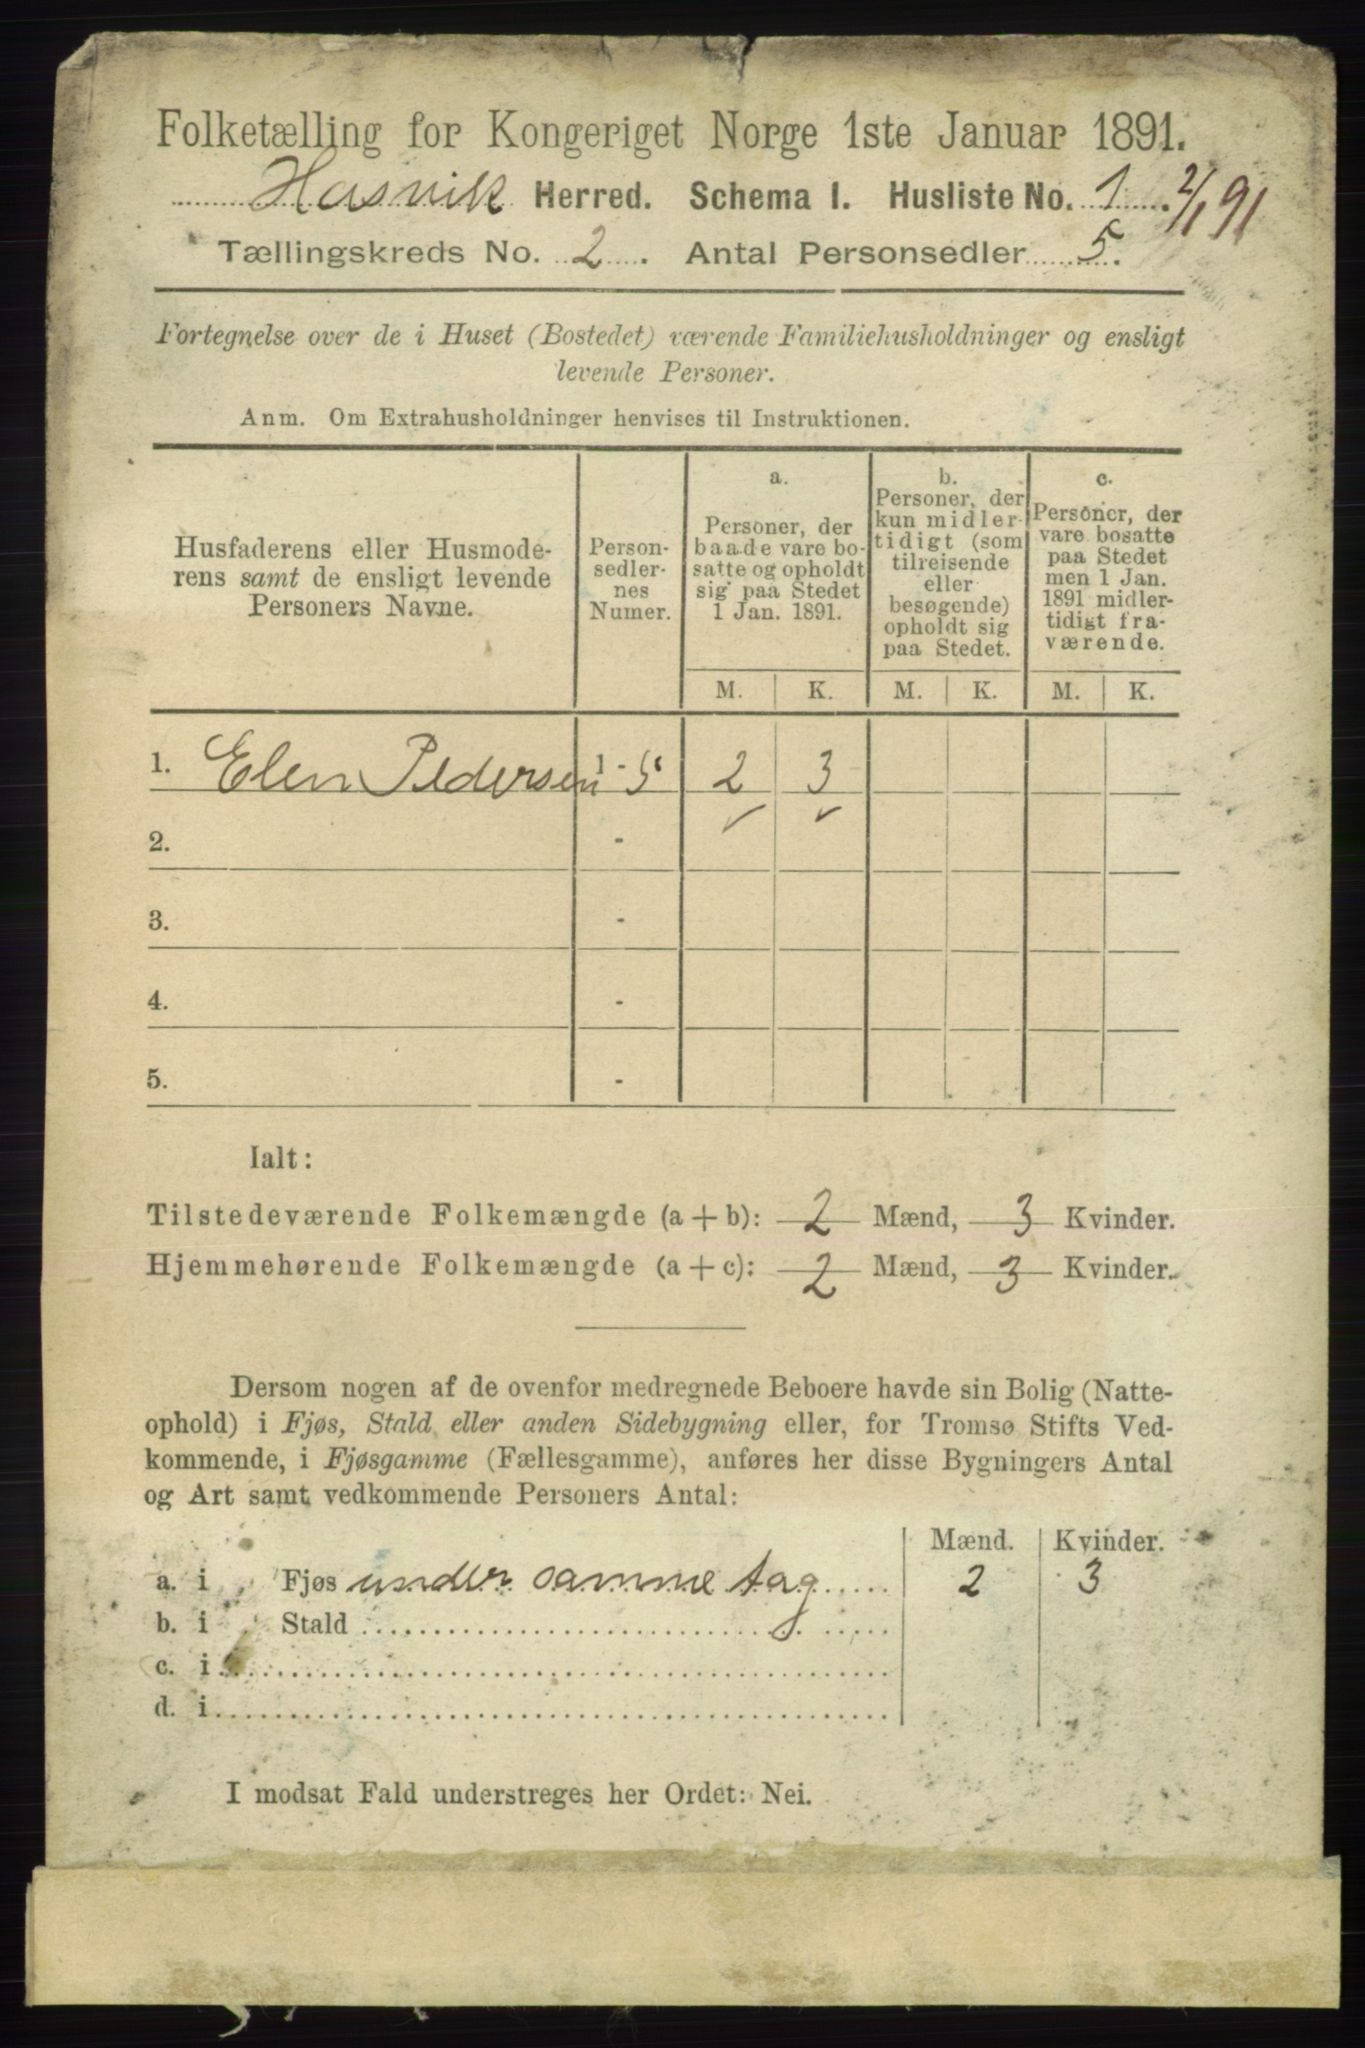 Folketælling for Kongeriget Norge 1ste Januar 1891.
Hasvik Herred. Schema I. Husliste No. 1. 2/1 91
Tællingskreds No. 2. Antal Personsedler 5.
Fortegnelse over de i Huset (Bostedet) værende Familiehusholdninger og ensligt
levende Personer.
Anm. Om Extrahusholdninger henvises til Instruktionen.
Husfaderens eller Husmode-
rens samt de ensligt levende
Personers Navne.
Person-
sedler-
nes
Numer.
a.
Personer, der
baade vare bo-
satte og opholdt
sig paa Stedet
1 Jan. 1891.
b.
Personer, der
kun midler-
tidigt (som
tilreisende
eller
besøgende)
opholdt sig
paa Stedet.
c.
Personer, der
vare bosatte
paa Stedet
men 1 Jan.
1891 midler-
tidigt fra-
værende.
M. K. M. K. M. K.
1. Elen Pedersen 1 - 5 2 3
2. -
3. -
4. -
5. -
Ialt:
Tilstedeværende Folkemængde (a + b): 2 Mænd, 3 Kvinder.
Hjemmehørende Folkemængde (a + c): 2 Mænd, 3 Kvinder.
Dersom nogen af de ovenfor medregnede Beboere havde sin Bolig (Natte-
ophold) i Fjøs, Stald eller anden Sidebygning eller, for Tromsø Stifts Ved-
kommende, i Fjøsgamme (Fællesgamme), anføres her disse Bygningers Antal
og Art samt vedkommende Personers Antal:
Mænd. Kvinder.
a. i Fjøs under samme tag 2 3
b. i Stald
c. i
d. i
I modsat Fald understreges her Ordet: Nei.